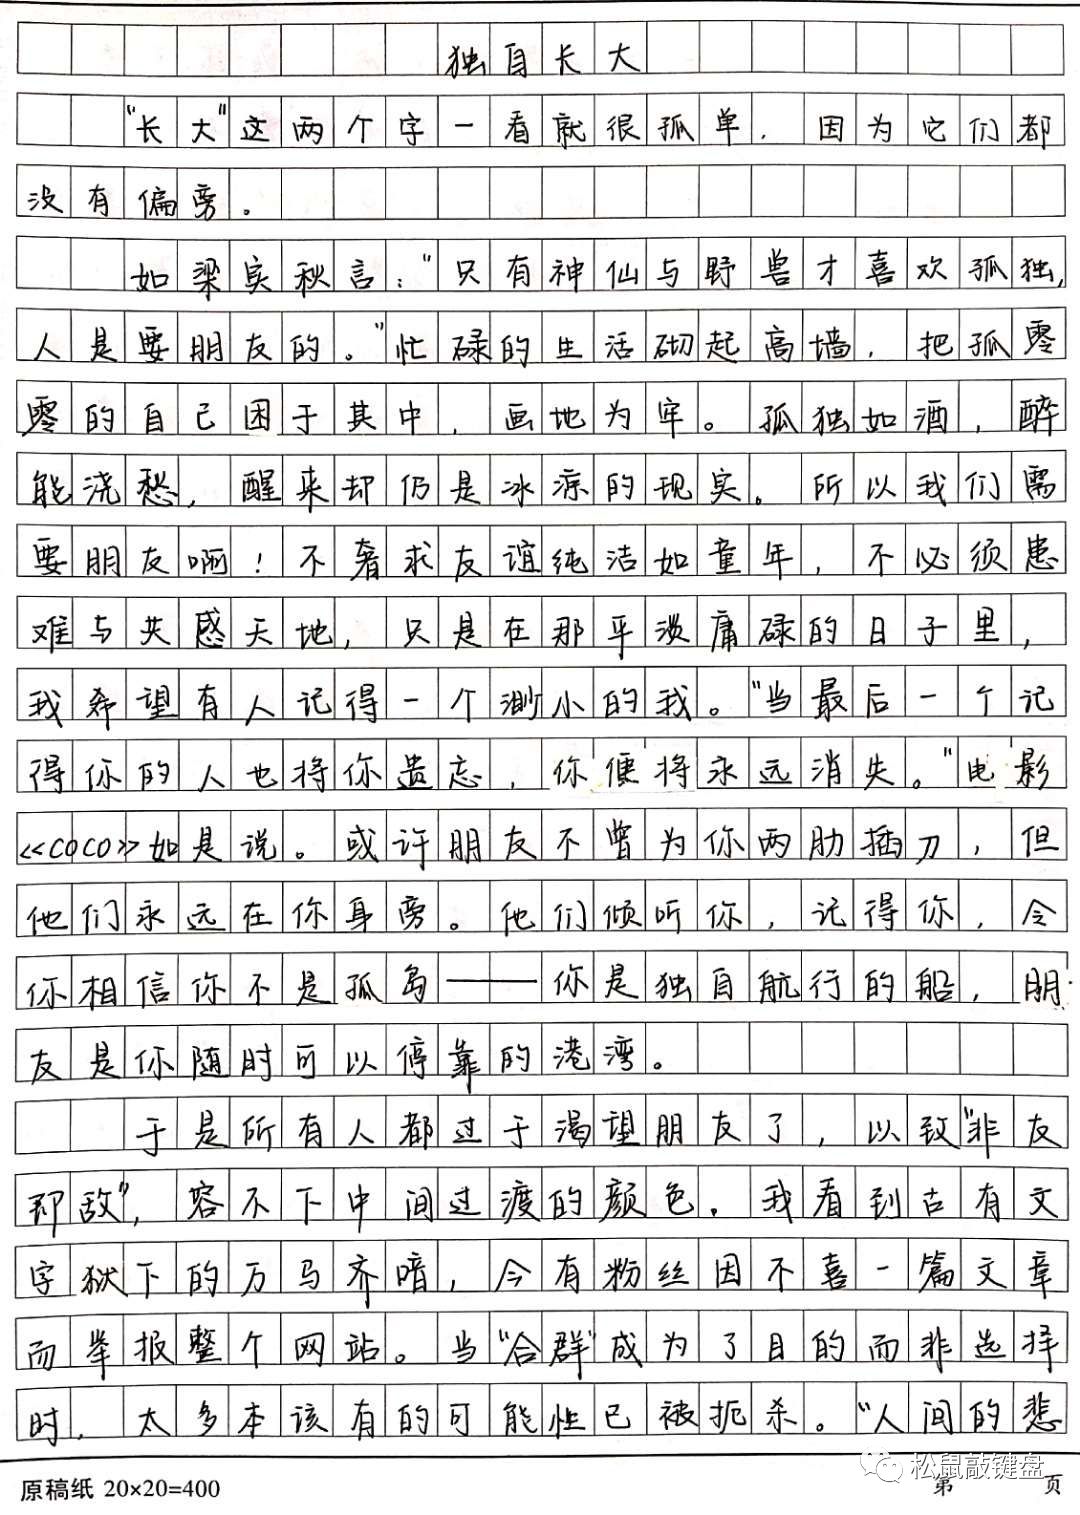 独自长大
“长大”这两个字一看就很孤单，因为它们都
没有偏旁。
如梁实秋言：“只有神仙与野兽才喜欢孤独，
人是要朋友的。”忙碌的生活砌起高墙，把孤零
零的自己困于其中，画地为牢。孤独如酒，醉
能浇愁，醒来却仍是冰凉的现实。所以我们需
要朋友啊！不奢求友谊纯洁如童年，不必须患
难与共感天地，只是在那平淡庸碌的日子里，
我希望有人记得一个渺小的我。“当最后一个记
得你的人也将你遗忘，你便将永远消失。”电影
《COCO》如是说。或许朋友不曾为你两肋插刀，但
他们永远在你身旁。他们倾听你，记得你，令
你相信你不是孤岛——你是独自航行的船，朋
友是你随时可以停靠的港湾。
于是所有人都过于渴望朋友了，以致“非友
即敌”，容不下中间过渡的颜色。我看到古有文
字狱下的万马齐喑，今有粉丝因不喜一篇文章
而举报整个网站。当“合群”成为了目的而非选择
时，太多本该有的可能性已被扼杀。“人间的悲
原稿纸 20×20=400
松鼠敲键盘
第 页